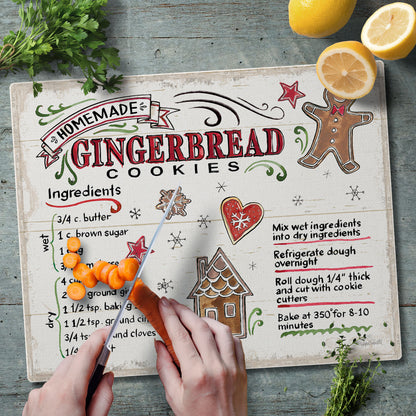 HOMEMADE
GINGERBREAD
COOKIES
Ingredients
wet
3/4 c. butter
1 c. brown sugar
1 egg
3/4 c
4 cu
2
ground g
1 1/2 tsp. baking
1 1/2 tsp. ground
3/4 tsp. ground cloves
1/2
dry
Mix wet ingredients
into dry ingredients
Refrigerate dough
overnight
Roll dough 1/4" thick
and cut with cookie
cutters
Bake at 350° for 8-10
minutes